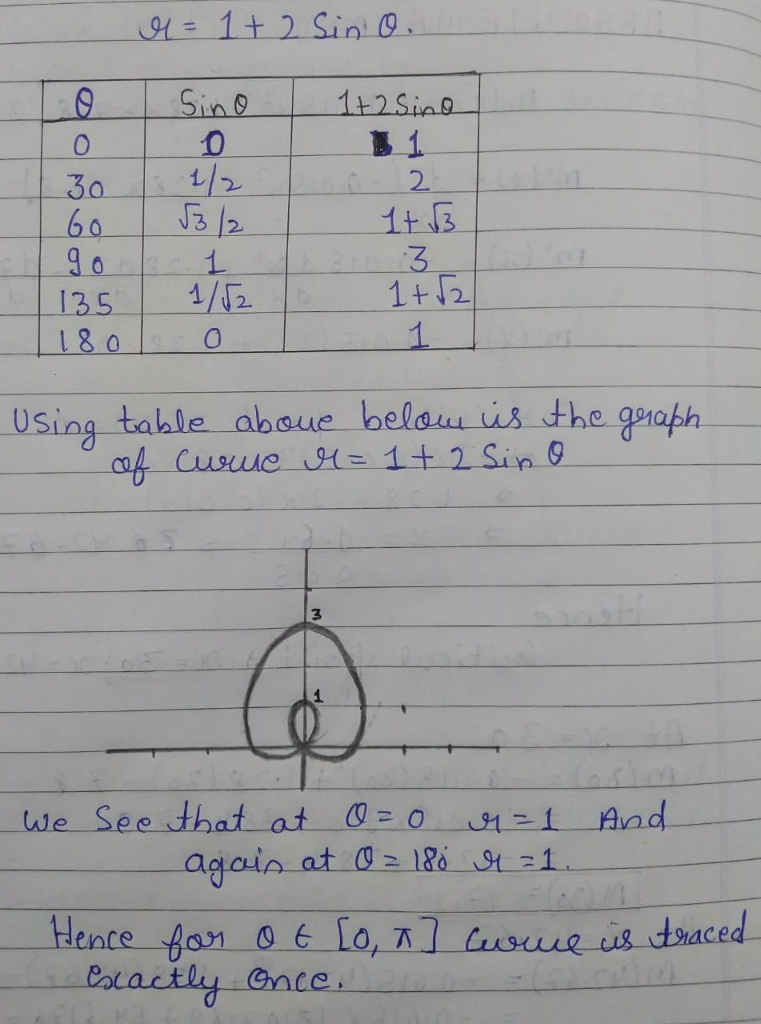 r = 1 + 2 Sin θ.
θ Sin θ 1+2 Sin θ
0 0 1
30 1/2 2
60 √3/2 1+√3
90 1 3
135 1/√2 1+√2
180 0 1
Using table above below is the graph
of curve r = 1 + 2 Sin θ
3
1
We See that at θ = 0 r = 1 And
again at θ = 180 r = 1.
Hence for θ ∈ [0, π] curve is traced
exactly once.